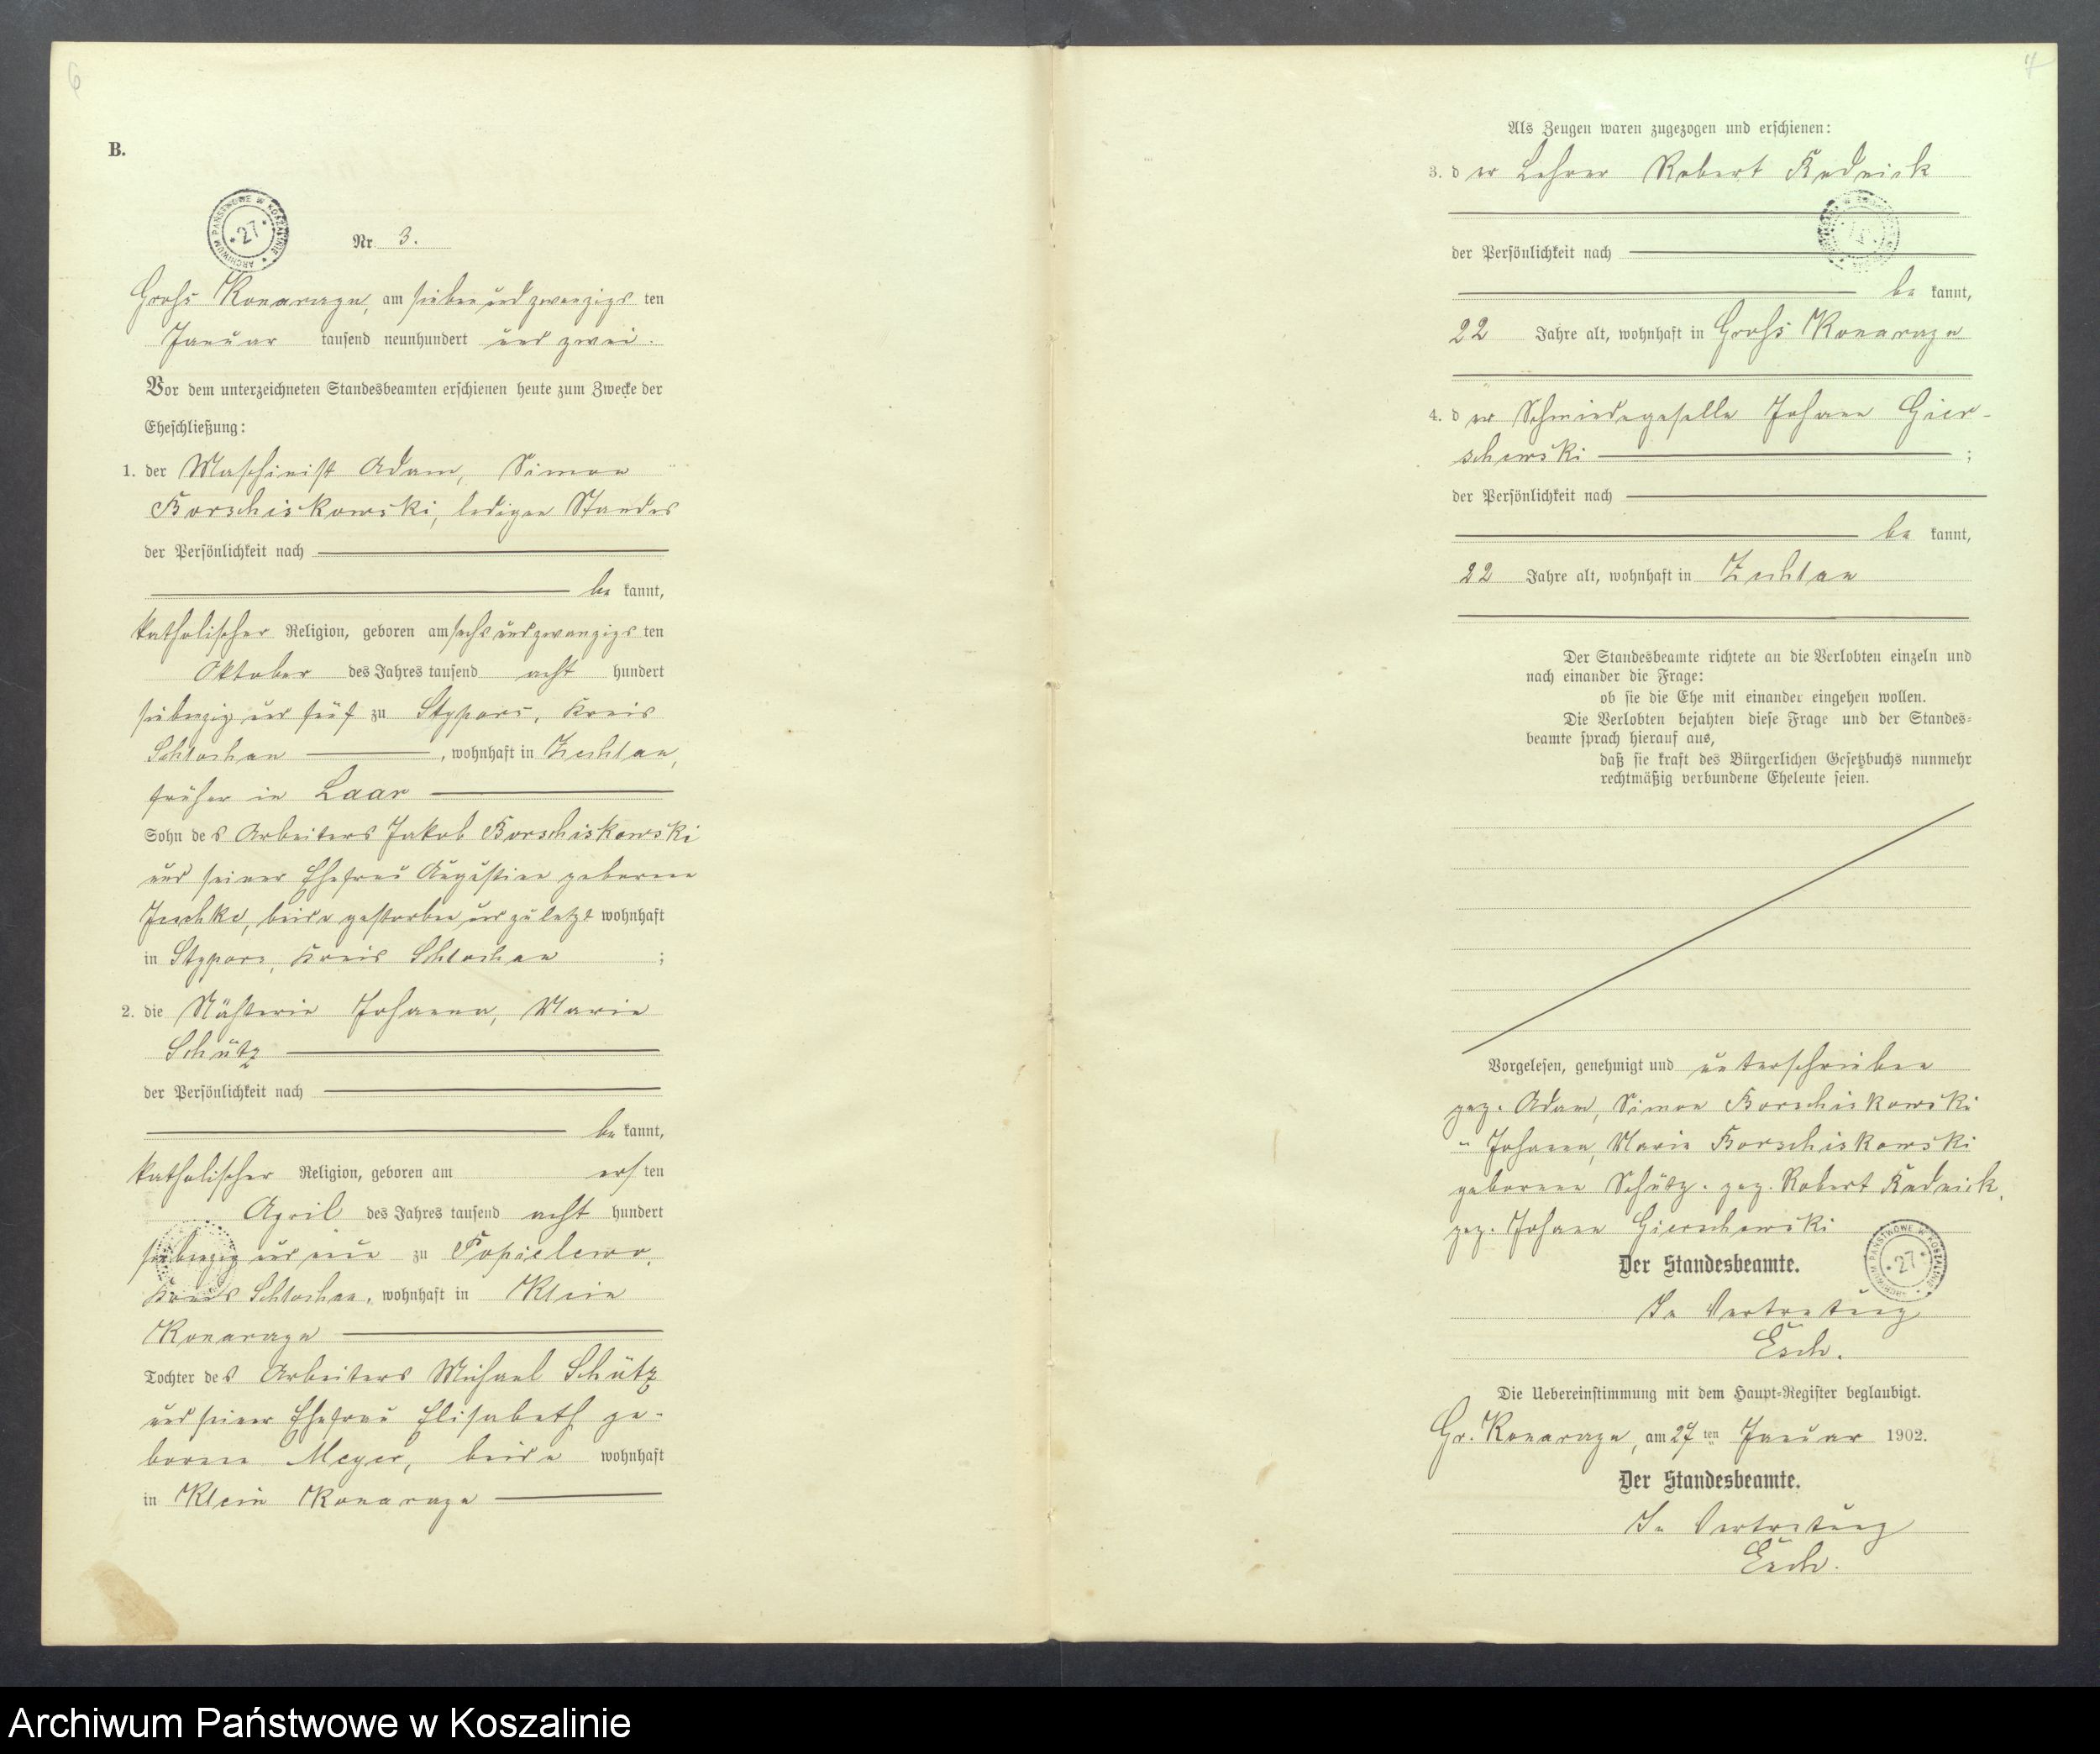 6
B.
ARCHIWUM PAŃSTWOWE W KOSZALINIE * 27 *
Nr. 3.
Groß Konarczyn, am sieben und zwanzigs ten
Januar tausend neunhundert und zwei.
Vor dem unterzeichneten Standesbeamten erschienen heute zum Zwecke der
Eheschließung:
1. der Maschinist Adam, Simon
Borschiskowski, ledigen Standes
der Persönlichkeit nach
be kannt,
katholischer Religion, geboren am sechs und zwanzigs ten
Oktober des Jahres tausend acht hundert
siebenzig und fünf zu Stypors, Kreis
Schlochau, wohnhaft in Zechlau,
früher in Laar
Sohn des Arbeiters Jakob Borschiskowski
und seiner Ehefrau Augustine geborene
Jeschke, beide gestorben und zuletzt wohnhaft
in Stypors, Kreis Schlochau ;
2. die Nähterin Johanna, Marie
Schütz
der Persönlichkeit nach
be kannt,
katholischer Religion, geboren am ers ten
April des Jahres tausend acht hundert
siebenzig und neun zu Popielewo,
Kreis Schlochau, wohnhaft in Klein
Konarczyn
Tochter des Arbeiters Michael Schütz
und seiner Ehefrau Elisabeth ge-
borene Meyer, beide wohnhaft
in Klein Konarczyn
7
Als Zeugen waren zugezogen und erschienen:
3. der Lehrer Robert
der Persönlichkeit nach
be kannt,
22 Jahre alt, wohnhaft in Groß Konarczyn
4. der Schmiedegeselle Johann Gier-
schewski ;
der Persönlichkeit nach
be kannt,
22 Jahre alt, wohnhaft in Zechlau
Der Standesbeamte richtete an die Verlobten einzeln und
nach einander die Frage:
ob sie die Ehe mit einander eingehen wollen.
Die Verlobten bejahten diese Frage und der Standes-
beamte sprach hierauf aus,
daß sie kraft des Bürgerlichen Gesetzbuchs nunmehr
rechtmäßig verbundene Eheleute seien.
Vorgelesen, genehmigt und unterschrieben
gez. Adam, Simon Borschiskowski
" Johanna, Marie Borschiskowski
geborene Schütz. gez. Robert
gez. Johann Gierschewski
Der Standesbeamte.
ARCHIWUM PAŃSTWOWE W KOSZALINIE * 27 *
In Vertretung
Esch.
Die Uebereinstimmung mit dem Haupt-Register beglaubigt.
Gr. Konarczyn, am 27 ten Januar 1902.
Der Standesbeamte.
In Vertretung
Esch.
Archiwum Państwowe w Koszalinie